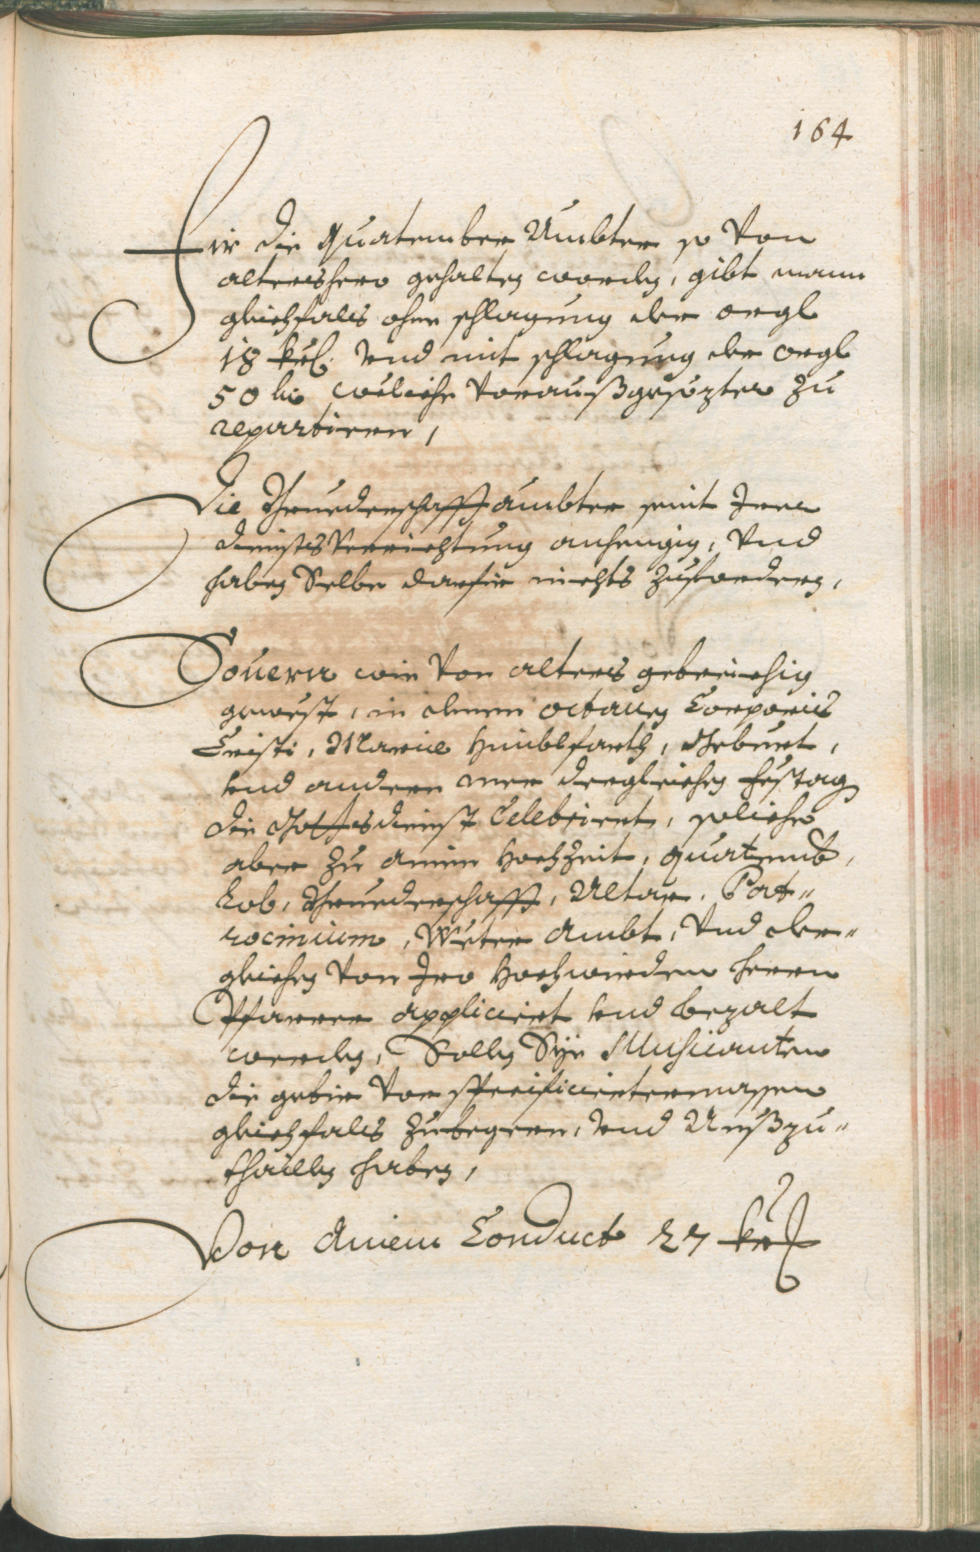 164
Fir die Quatember Ambter so von
altershero gehalten worden, gibt mann
gleichfals ohne schlagung der orgl
18 kr. vnd mit schlagung der orgl
50 kr welliche vorauß gesezter zu
repartiren,
Die Bruederschafft ämbter seint Irer
diensts verrichtung anhengig, vnd
haben Selbe darfir nichts zufordern,
Souern wie von alters gebreichig
gewest, in denen octauen Corporis
Cristi, Mariæ Himblfarth, Geburt,
vnd andern mer dergleichen Festag
die Gottsdienst Celebriert, soliche
aber zu ainem Hochzeit, quatemb,
Lob, Bruederschafft, Altar, Pat¬
rocinium, Weter Ambt, vnd der¬
gleichen von Iro Hochwirden herrn
Pfarrer appliciert vnd bezalt
werden, Sollen Sye Musicanten
die gebir vor specificiertermassen
gleichfals zubegern, vnd Außzu¬
thaillen haben,
Von ainem Conduct 27 kr